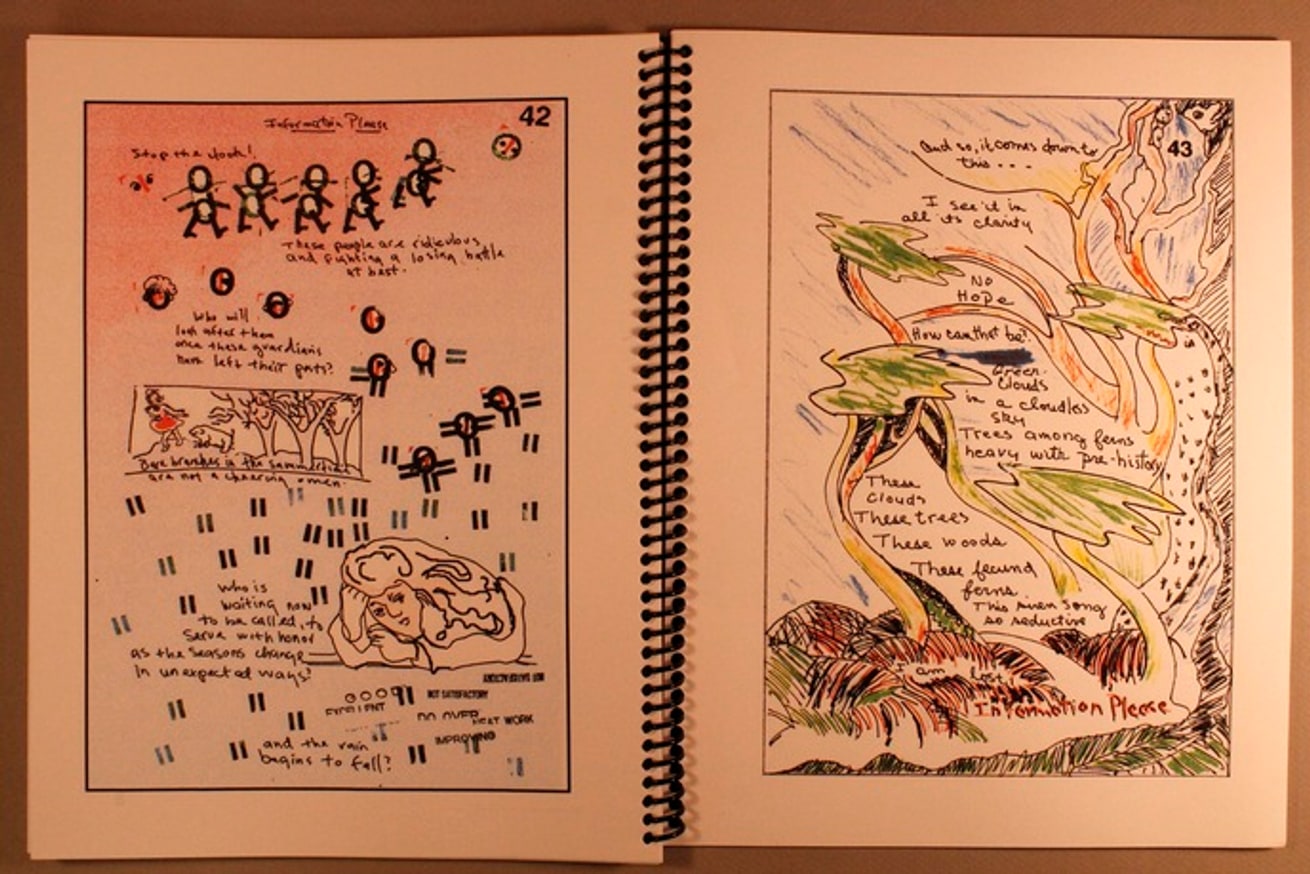 42
Information Please
Stop the clock!
These people are ridiculous
and fighting a losing battle
at best.
Who will
look after them
once these guardians
have left their posts?
Bare branches in the summertime
are not a cheering omen.
Who is
waiting now
to be called, to
serve with honor
as the seasons change
in unexpected ways?
NOT SATISFACTORY
GOOD
NOT SATISFACTORY
EXCELLENT
DO OVER
NEAT WORK
IMPROVING
and the rain
begins to fall?
43
And so, it comes down to
this...
I see it in
all its clarity
No
Hope
How can that be?
Green
Clouds
in a cloudless
sky
Trees among ferns
heavy with pre-history
These
Clouds
These trees
These woods
These fecund
ferns.
This siren song
so seductive
I am lost.
Information Please